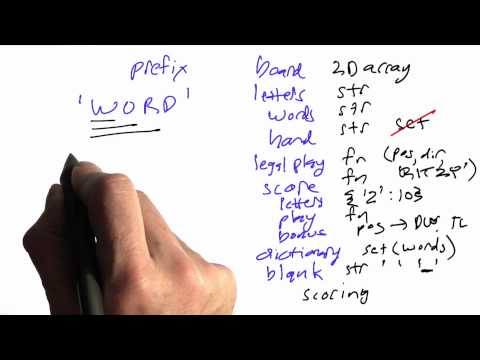 prefix
'WORD'
board 2D array
letters str
words str
hand str set
legal play fn (pos, dir,
score fn
letters {'Z':10}
play fn
bonus pos → DW, TL
dictionary set(words)
blank str ' ' '_'
scoring